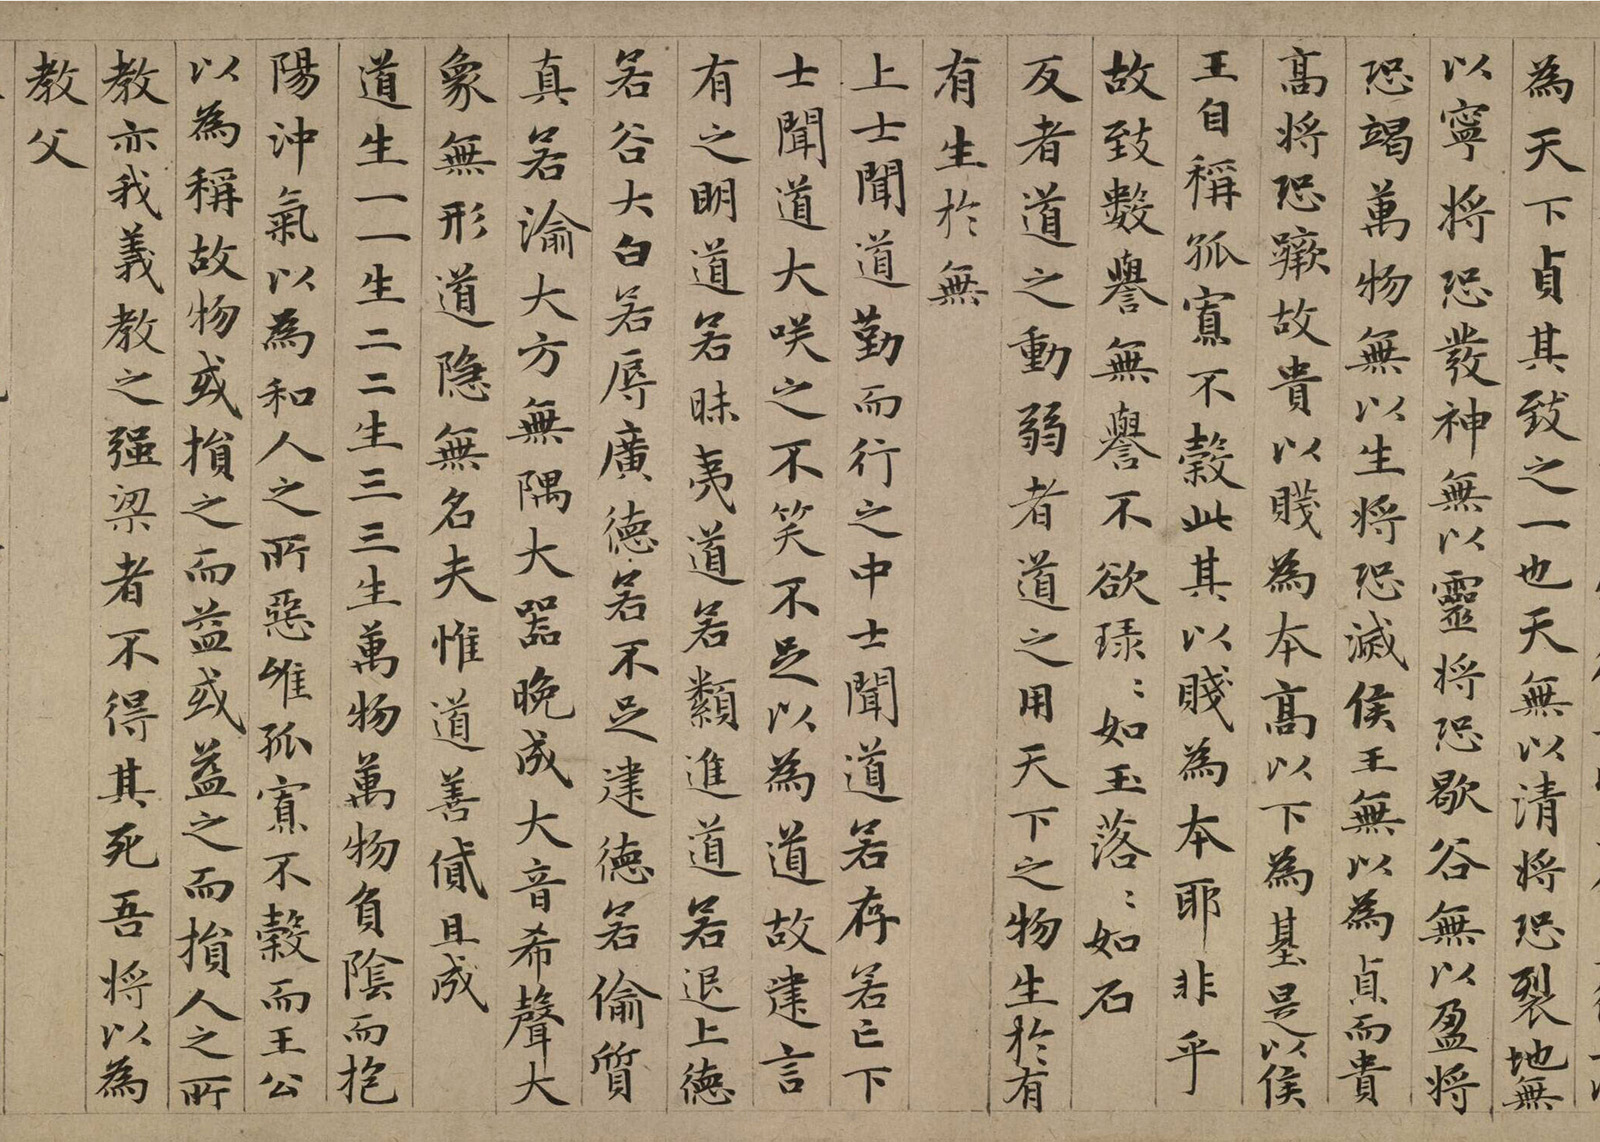 為天下貞其致之一也天無以清將恐裂地無
以寧將恐發神無以靈將恐歇谷無以盈將
恐竭萬物無以生將恐滅侯王無以為貞而貴
高將恐蹶故貴以賤為本高以下為基是以侯
王自稱孤寡不穀此其以賤為本耶非乎
故致數譽無譽不欲琭〻如玉落〻如石
反者道之動弱者道之用天下之物生於有
有生於無
上士聞道勤而行之中士聞道若存若亡下
士聞道大咲之不笑不足以為道故建言
有之明道若昧夷道若類進道若退上德
若谷大白若辱廣德若不足建德若偷質
真若渝大方無隅大器晚成大音希聲大
象無形道隱無名夫惟道善貸且成
道生一一生二二生三三生萬物萬物負陰而抱
陽沖氣以為和人之所惡唯孤寡不穀而王公
以為稱故物或損之而益或益之而損人之所
教亦我義教之强梁者不得其死吾將以為
教父